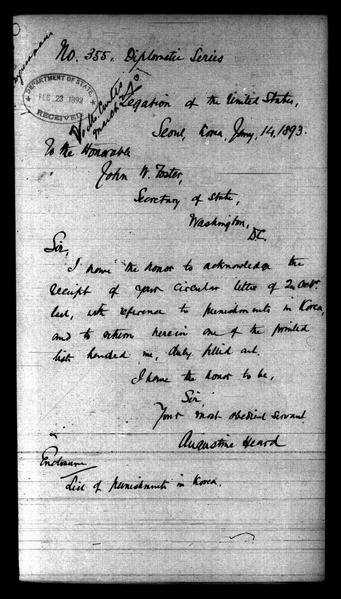 No. 355. Diplomatic Series
DEPARTMENT OF STATE
FEB 23 1893
RECEIVED
Legation of the United States,
Seoul, Korea, Jany. 14, 1893.
To the Honorable
John W. Foster,
Secretary of State,
Washington,
D.C.
Sir,
I have the honor to acknowledge the
receipt of your circular letter of 20 Octr.
last, with reference to punishments in Korea,
and to return herein one of the printed
lists handed me, duly filled out.
I have the honor to be,
Sir,
Your most obedient servant
Augustine Heard
Enclosure
List of punishments in Korea.